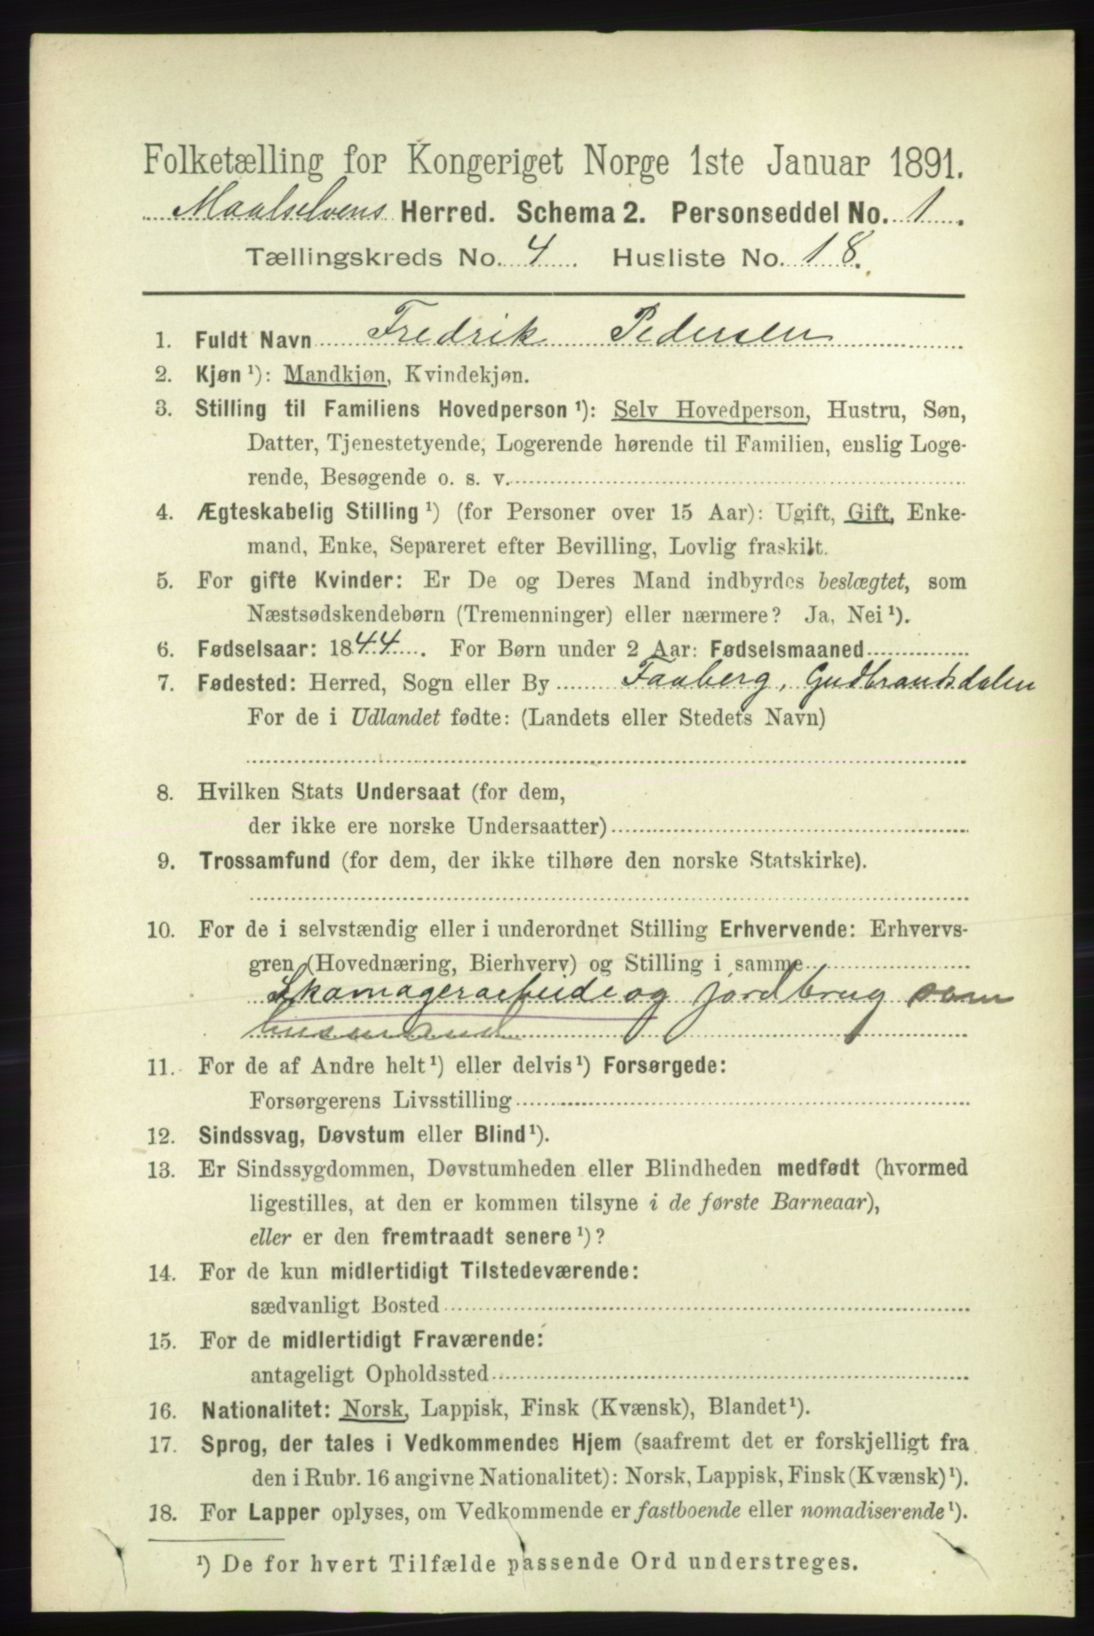 Folketælling for Kongeriget Norge 1ste Januar 1891.
Maalselvens Herred. Schema 2. Personseddel No. 1.
Tællingskreds No. 4. Husliste No. 18.
1. Fuldt Navn Fredrik Pedersen
2. Kjøn ¹): Mandkjøn, Kvindekjøn.
3. Stilling til Familiens Hovedperson ¹): Selv Hovedperson, Hustru, Søn,
Datter, Tjenestetyende, Logerende hørende til Familien, enslig Loge-
rende, Besøgende o. s. v.
4. Ægteskabelig Stilling ¹) (for Personer over 15 Aar): Ugift, Gift, Enke-
mand, Enke, Separeret efter Bevilling, Lovlig fraskilt.
5. For gifte Kvinder: Er De og Deres Mand indbyrdes beslægtet, som
Næstsødskendebørn (Tremenninger) eller nærmere? Ja, Nei ¹).
6. Fødselsaar: 1844. For Børn under 2 Aar: Fødselsmaaned
7. Fødested: Herred, Sogn eller By Faaberg, Gudbrandsdalen
For de i Udlandet fødte: (Landets eller Stedets Navn)
8. Hvilken Stats Undersaat (for dem,
der ikke ere norske Undersaatter)
9. Trossamfund (for dem, der ikke tilhøre den norske Statskirke).
10. For de i selvstændig eller i underordnet Stilling Erhvervende: Erhvervs-
gren (Hovednæring, Bierhverv) og Stilling i samme
Skomagerarbeide og jordbrug som
husmand
11. For de af Andre helt ¹) eller delvis ¹) Forsørgede:
Forsørgerens Livsstilling
12. Sindssvag, Døvstum eller Blind ¹).
13. Er Sindssygdommen, Døvstumheden eller Blindheden medfødt (hvormed
ligestilles, at den er kommen tilsyne i de første Barneaar),
eller er den fremtraadt senere ¹)?
14. For de kun midlertidigt Tilstedeværende:
sædvanligt Bosted
15. For de midlertidigt Fraværende:
antageligt Opholdssted
16. Nationalitet: Norsk, Lappisk, Finsk (Kvænsk), Blandet ¹).
17. Sprog, der tales i Vedkommendes Hjem (saafremt det er forskjelligt fra
den i Rubr. 16 angivne Nationalitet): Norsk, Lappisk, Finsk (Kvænsk) ¹).
18. For Lapper oplyses, om Vedkommende er fastboende eller nomadiserende ¹).
¹) De for hvert Tilfælde passende Ord understreges.